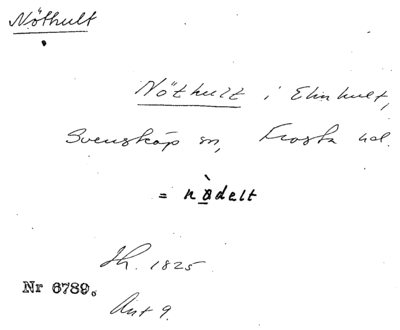 Nöthult
Nöthult i Elinhult,
Svensköp sn, Frosta hd.
= nàdelt
Jh. 1825
Nr 6789.
Ant 9.